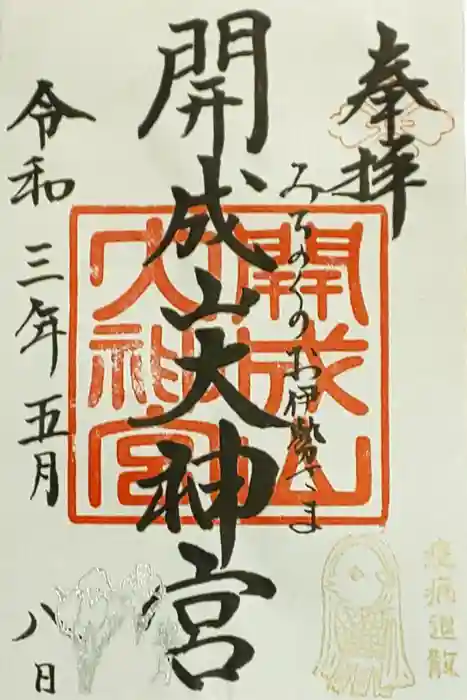 奉拝
みちのくのお伊勢さま
開成山大神宮
開成山
大神宮
令和三年五月八日
疫病退散